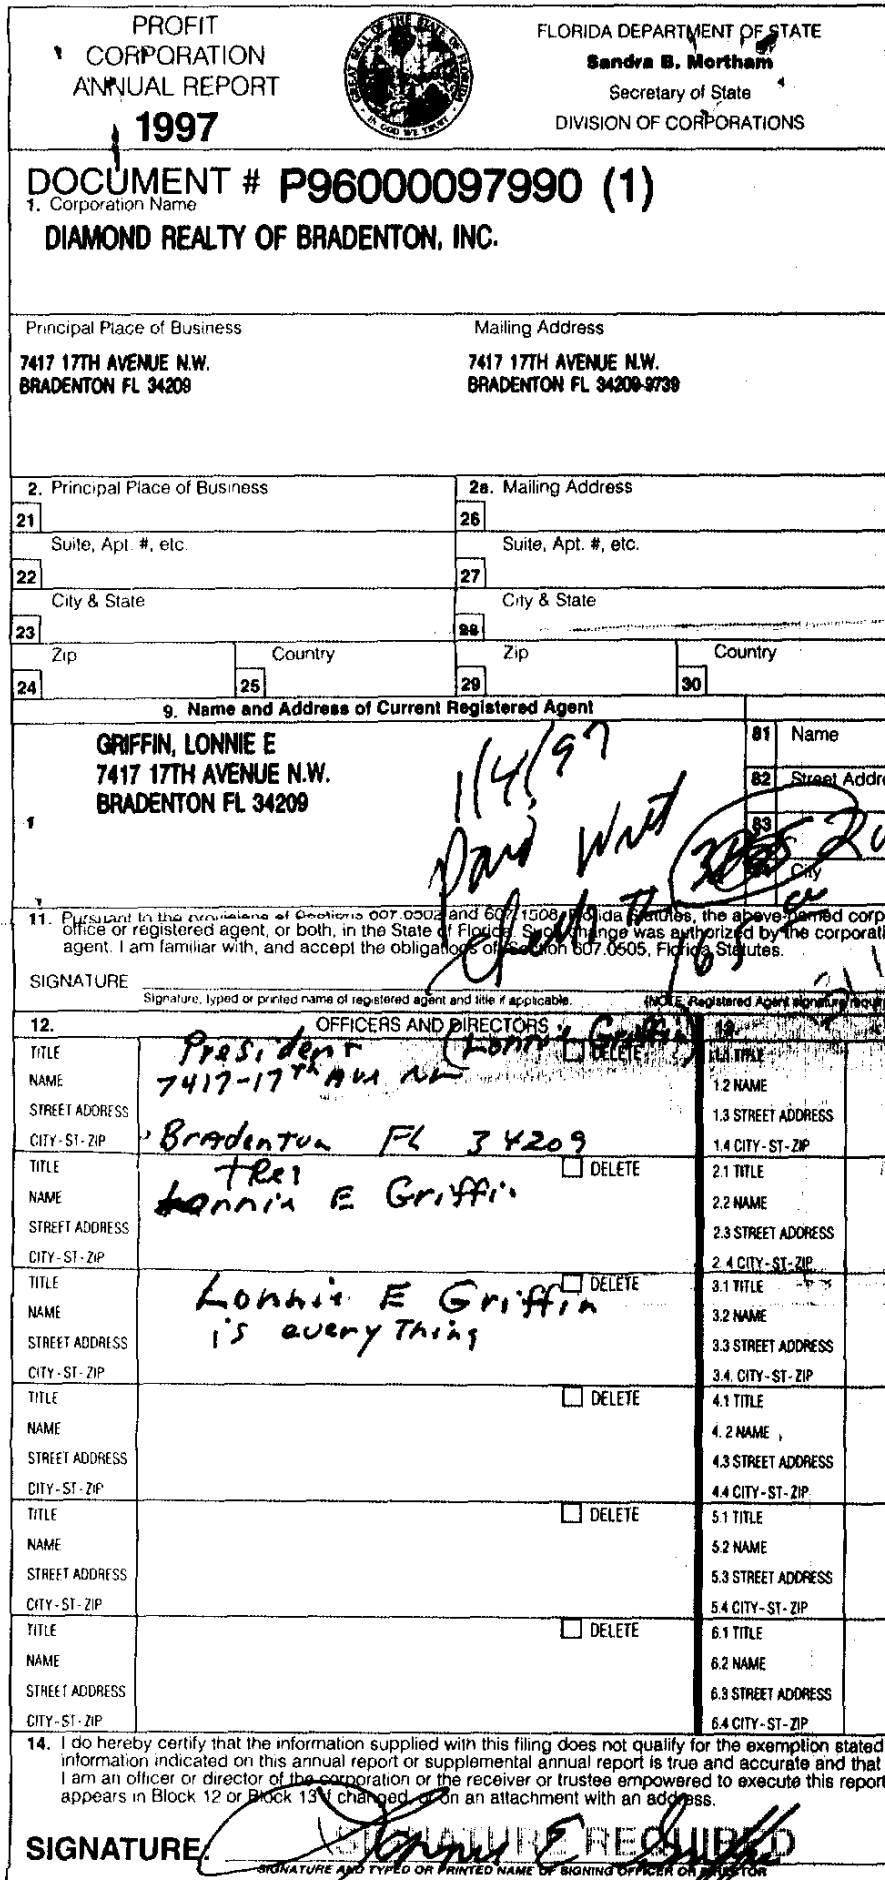 PROFIT
CORPORATION
ANNUAL REPORT
1997
FLORIDA DEPARTMENT OF STATE
Sandra B. Mortham
Secretary of State
DIVISION OF CORPORATIONS
DOCUMENT # P96000097990 (1)
1. Corporation Name
DIAMOND REALTY OF BRADENTON, INC.
Principal Place of Business
7417 17TH AVENUE N.W.
BRADENTON FL 34209
Mailing Address
7417 17TH AVENUE N.W.
BRADENTON FL 34209-9739
2. Principal Place of Business
21
Suite, Apt. #, etc.
22
City & State
23
Zip
24
Country
25
2a. Mailing Address
26
Suite, Apt. #, etc.
27
City & State
28
Zip
29
Country
30
9. Name and Address of Current Registered Agent
GRIFFIN, LONNIE E
7417 17TH AVENUE N.W.
BRADENTON FL 34209
1/4/97
Paid
81 Name
82 Street Addre
83
City
11. Pursuant to the provisions of Sections 607.0502 and 607.1508, Florida Statutes, the above-named corp
office or registered agent, or both, in the State of Florida. Such change was authorized by the corporati
agent. I am familiar with, and accept the obligations of, Section 607.0505, Florida Statutes.
SIGNATURE
Signature, typed or printed name of registered agent and title if applicable. (NOTE: Registered Agent signature requir
12. OFFICERS AND DIRECTORS
13.
TITLE President (Lonnie Griffin) DELETE
NAME 7417-17th Ave NW
STREET ADDRESS
CITY-ST-ZIP Bradenton FL 34209
TITLE tres DELETE
NAME Lonnie E Griffin
STREET ADDRESS
CITY-ST-ZIP
TITLE Lonnie E Griffin DELETE
NAME is every Thing
STREET ADDRESS
CITY-ST-ZIP
TITLE DELETE
NAME
STREET ADDRESS
CITY-ST-ZIP
TITLE DELETE
NAME
STREET ADDRESS
CITY-ST-ZIP
TITLE DELETE
NAME
STREET ADDRESS
CITY-ST-ZIP
1.1 TITLE
1.2 NAME
1.3 STREET ADDRESS
1.4 CITY-ST-ZIP
2.1 TITLE
2.2 NAME
2.3 STREET ADDRESS
2.4 CITY-ST-ZIP
3.1 TITLE
3.2 NAME
3.3 STREET ADDRESS
3.4. CITY-ST-ZIP
4.1 TITLE
4.2 NAME
4.3 STREET ADDRESS
4.4 CITY-ST-ZIP
5.1 TITLE
5.2 NAME
5.3 STREET ADDRESS
5.4 CITY-ST-ZIP
6.1 TITLE
6.2 NAME
6.3 STREET ADDRESS
6.4 CITY-ST-ZIP
14. I do hereby certify that the information supplied with this filing does not qualify for the exemption stated
information indicated on this annual report or supplemental annual report is true and accurate and that
I am an officer or director of the corporation or the receiver or trustee empowered to execute this report
appears in Block 12 or Block 13 if changed, or on an attachment with an address.
SIGNATURE: Lonnie E Griffin
SIGNATURE REQUIRED
SIGNATURE AND TYPED OR PRINTED NAME OF SIGNING OFFICER OR DIRECTOR